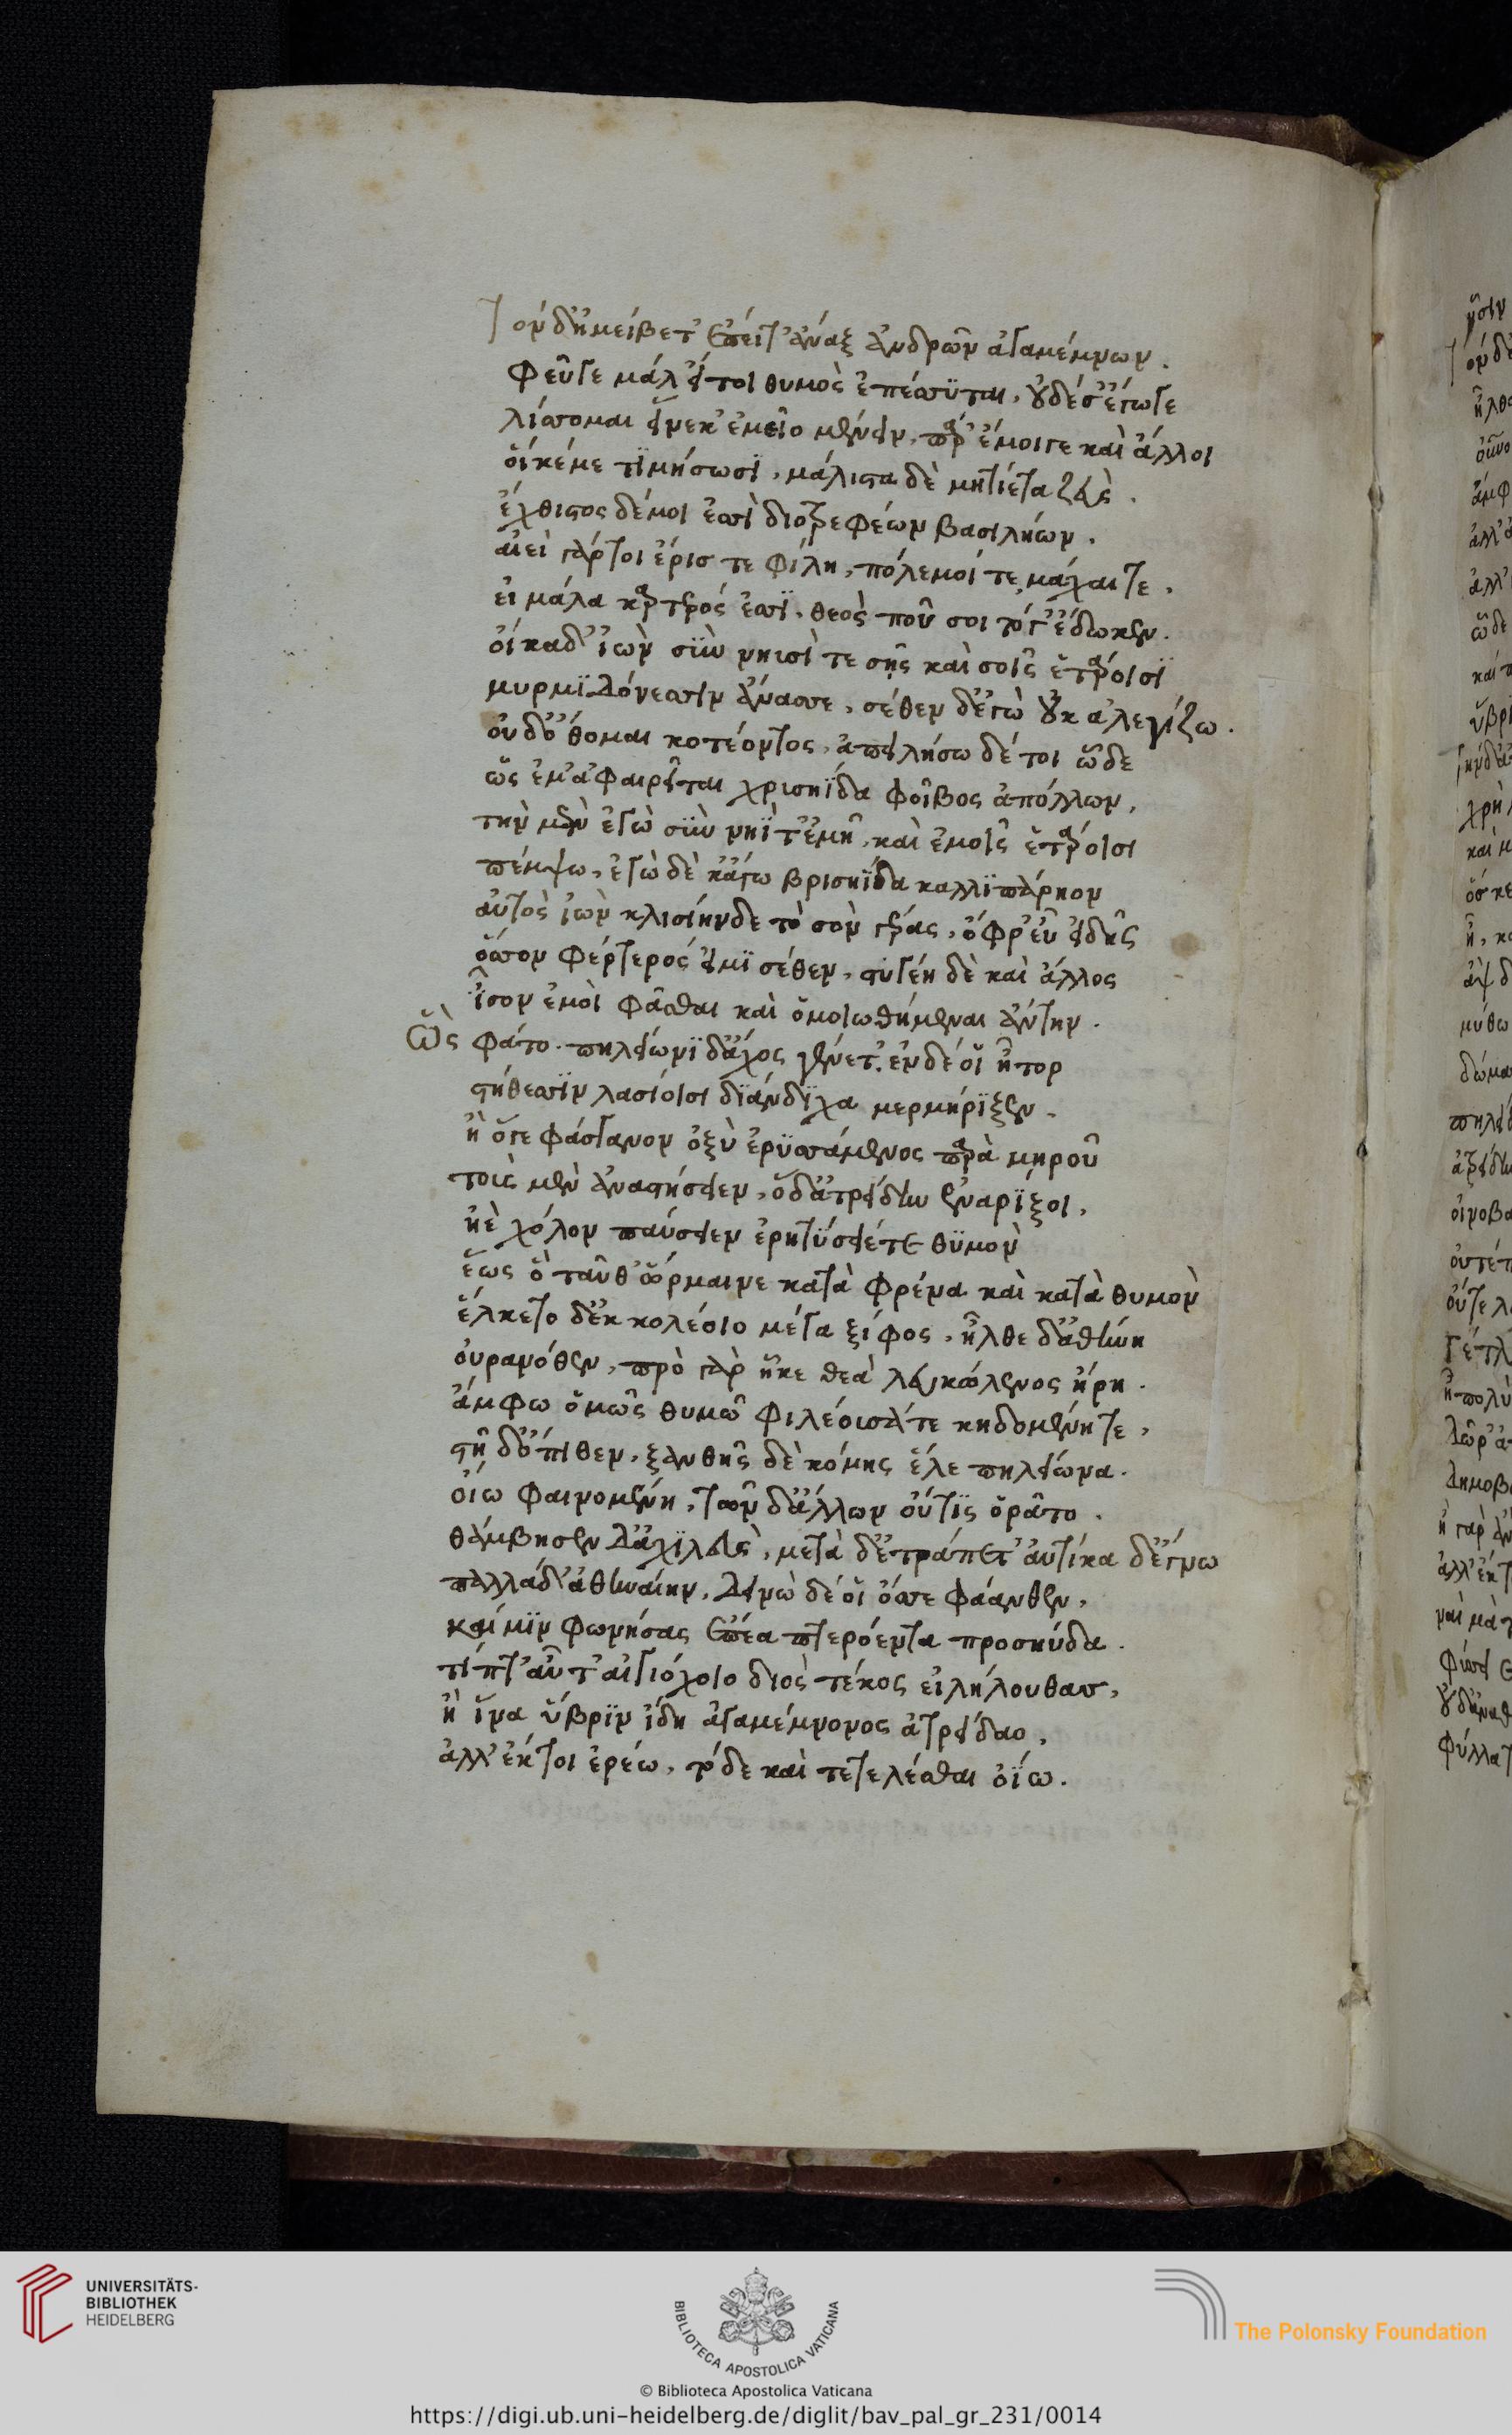 Τὸν δ' ἠμείβετ' ἔπειτ' ἄναξ ἀνδρῶν ἀγαμέμνων.
Φεῦγε μάλ' εἴ τοι θυμὸς ἐπέσσϋται, οὐδέ σ' ἔγωγε
λίσσομαι εἵνεκ' ἐμεῖο μένειν, παρ' ἔμοιγε καὶ ἄλλοι
οἵ κέ με τϊμήσωσϊ, μάλιστα δὲ μητίετα ζεὺς.
ἔχθιστος δέ μοι ἐσσὶ διοτρεφέων βασιλήων.
αἰεὶ γάρ τοι ἔρισ τε φίλη, πόλεμοί τε, μάχαι τε.
εἰ μάλα καρτερός ἐσσϊ, θεὸς ποῦ σοι τόγ' ἔδωκεν.
οἴκαδ' ἰὼν σὺν νηισί τε σῇς καὶ σοῖς ἑτάροισϊ
μυρμϊδόνεσσιν ἄνασσε, σέθεν δ' ἐγὼ οὐκ ἀλεγίζω.
οὐδ' ὄθομαι κοτέοντος, ἀπειλήσω δέ τοι ὧδε
ὡς ἔμ' ἀφαιρεῖται χρισηΐδα φοῖβος ἀπόλλων,
τὴν μὲν ἐγὼ σὺν νηΐ τ' ἐμῆ, καὶ ἐμοῖς ἑτάροισι
πέμψω, ἐγὼ δὲ κ' ἄγω βρισηΐδα καλλϊπάρηον
αὐτὸς ἰὼν κλισίηνδε τὸ σὸν γέρας, ὄφρ' εὖ εἰδῆς
ὅσσον φέρτερός εἰμϊ σέθεν, στυγέη δὲ καὶ ἄλλος
ἶσον ἐμοὶ φᾶσθαι καὶ ὁμοιωθήμεναι ἄντην.
Ὣς φάτο. πηλείωνϊ δ' ἄχος γένετ'. ἐν δέ οἵ ἦτορ
στήθεσσϊν λασίοισι δϊάνδϊχα μερμήρϊξεν.
ἢ ὅγε φάσγανον ὀξὺ ἐρϋσσάμενος παρὰ μηροῦ
τοὺς μὲν ἀναστήσειεν, ὁ δ' ἀτρείδην ἐναρϊξοι,
ἠὲ χόλον παύσειεν ἐρητύσειέ τε θϋμὸν
ἕως ὃ ταῦθ' ὥρμαινε κατὰ φρένα καὶ κατὰ θυμὸν
ἕλκετο δ' ἐκ κολέοιο μέγα ξίφος, ἦλθε δ' ἀθήνη
οὐρανόθεν, πρὸ γὰρ ἧκε θεὰ λευκώλενος ἥρη.
ἄμφω ὁμῶς θυμῶ φιλέοισά τε κηδομένη τε,
στῆ δ' ὄπιθεν, ξανθῆς δὲ κόμης ἕλε πηλείωνα.
οἴω φαινομένη, τῶν δ' ἄλλων οὔτϊς ὁρᾶτο.
θάμβησεν δ' ἀχϊλεὺς, μετὰ δ' ἐτράπετ' αὐτίκα δ' ἔγνω
παλλάδ' ἀθηναίην, δεινὼ δέ οἵ ὄσσε φάανθεν,
καί μϊν φωνήσας ἔπεα πτερόεντα προσηύδα.
τίπτ' αὖτ' αἰγιόχοιο διὸς τέκος εἰλήλουθασ,
ἢ ἵνα ὕβρϊν ἴδη ἀγαμέμνονος ἀτρείδαο,
ἀλλ' ἔκ τοι ἐρέω, τόδε καὶ τετελέσθαι ὀΐω.
UNIVERSITÄTS-
BIBLIOTHEK
HEIDELBERG
BIBLIOTECA APOSTOLICA VATICANA
The Polonsky Foundation
© Biblioteca Apostolica Vaticana
https://digi.ub.uni-heidelberg.de/diglit/bav_pal_gr_231/0014